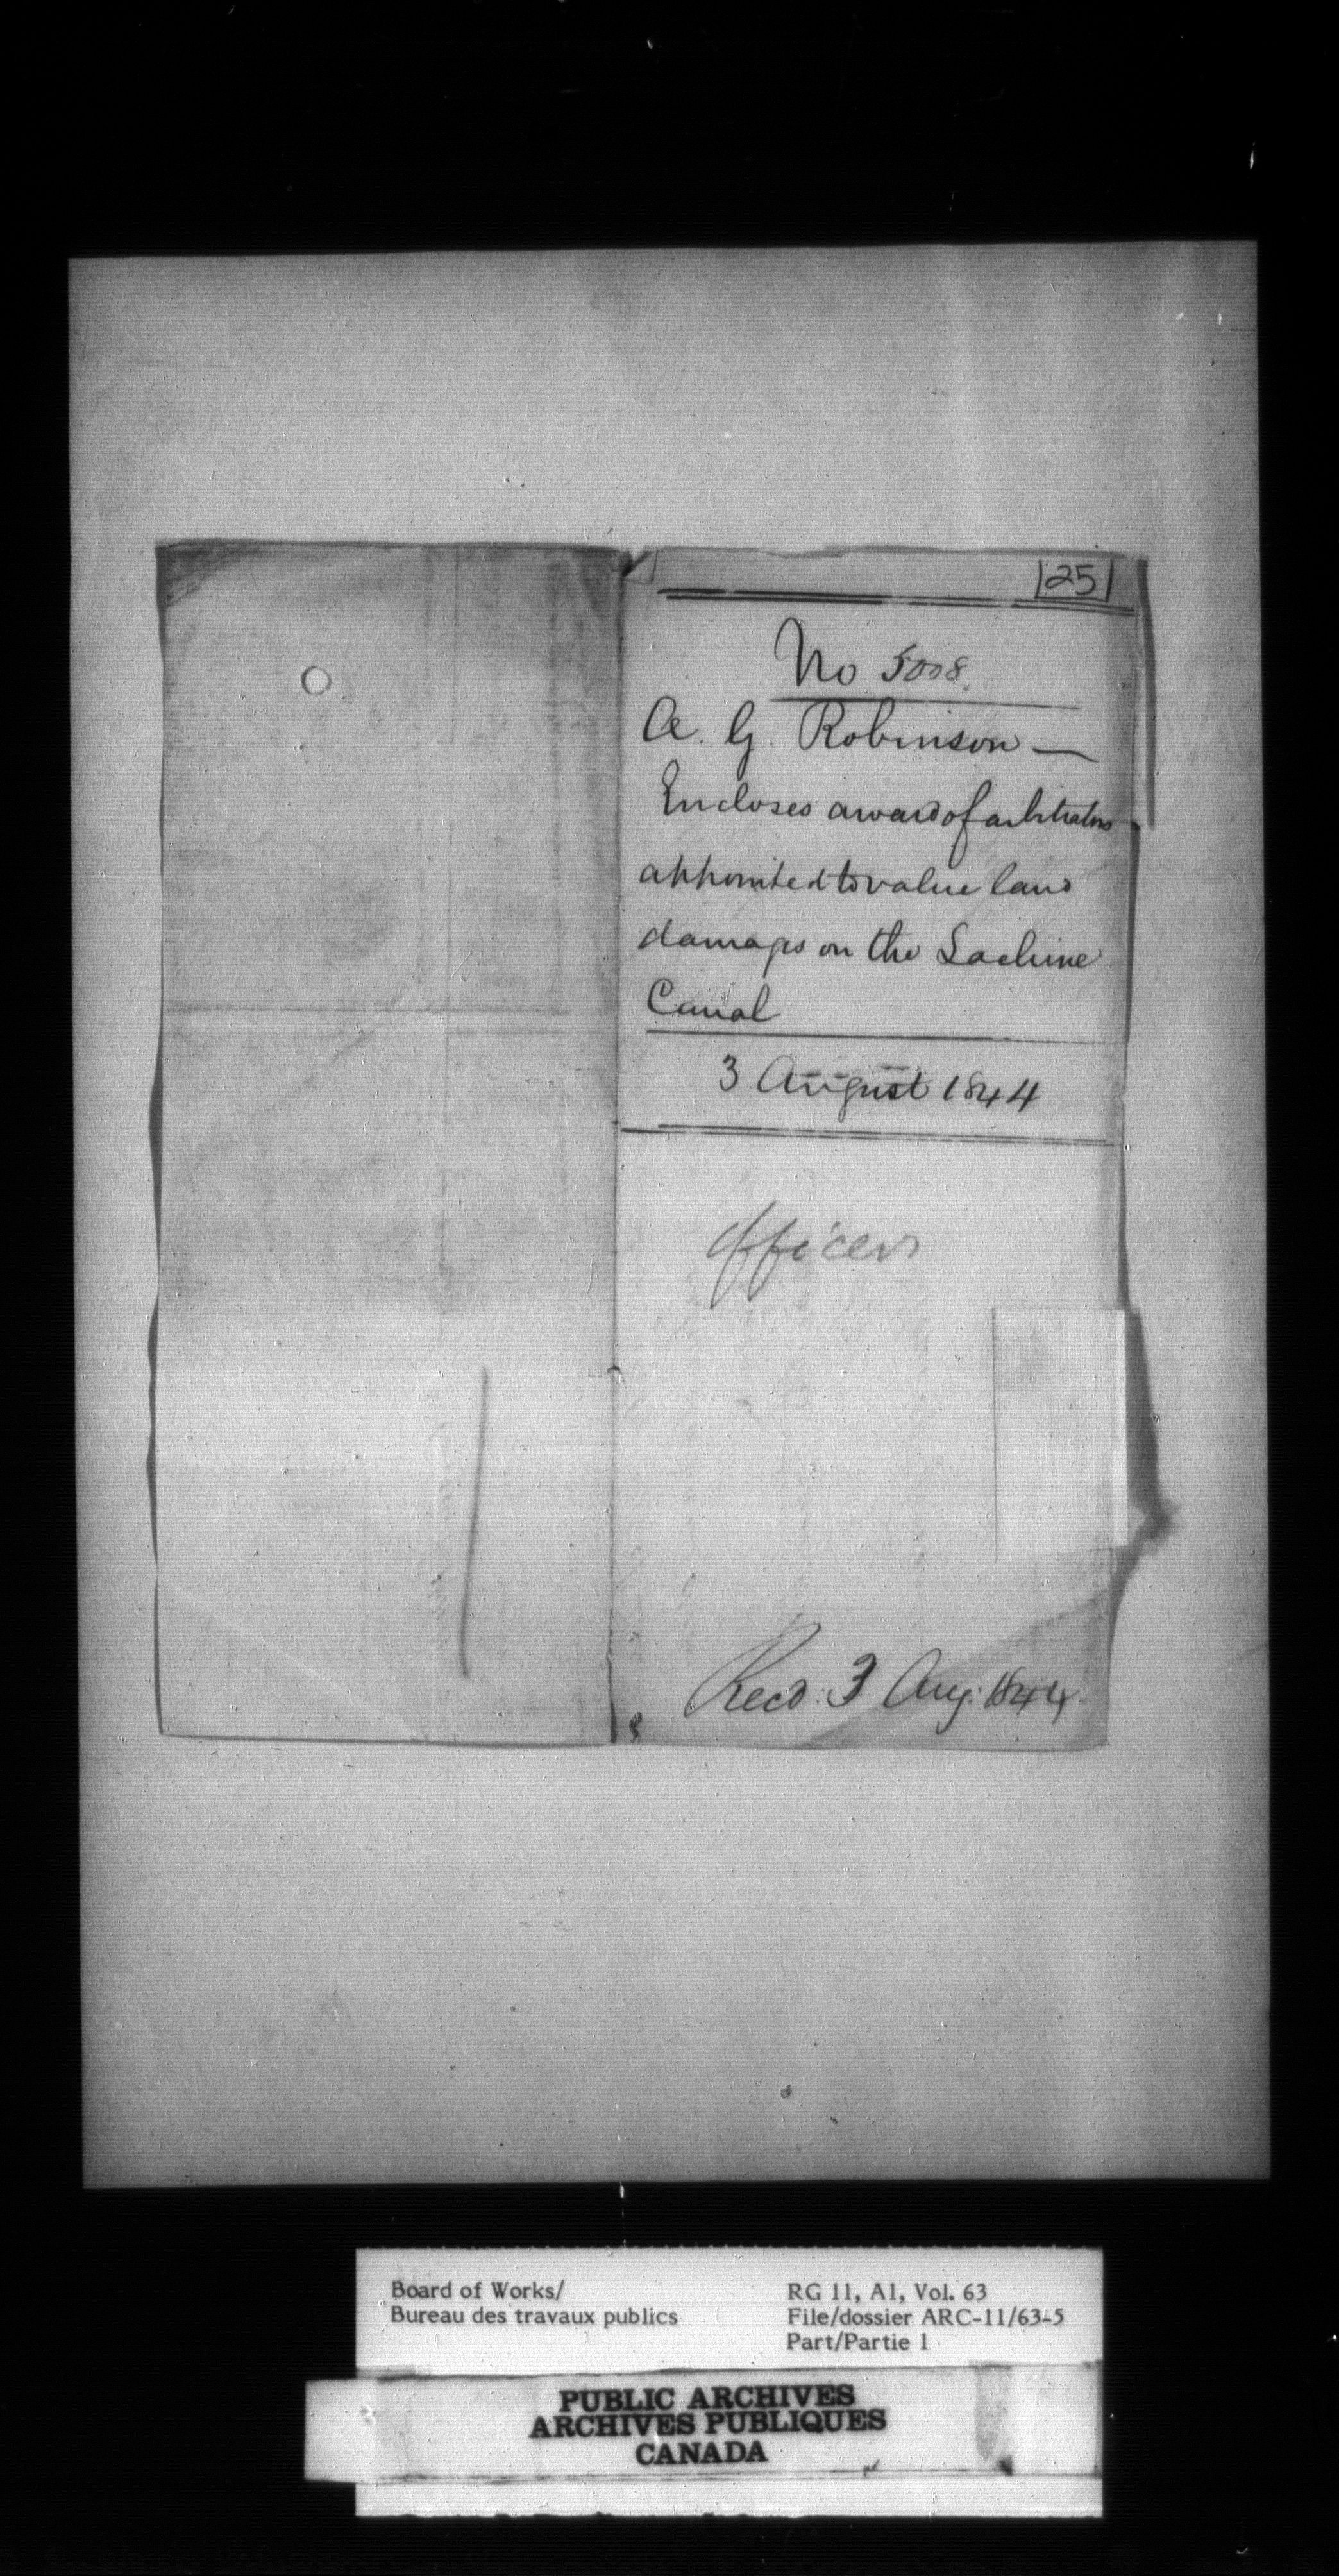 25
No 5008
A. G. Robinson —
Encloses award of arbitrators
appointed to value land
damages on the Lachine
Canal
3 August 1844
Officers
Recd. 3 Aug. 1844
Board of Works/
Bureau des travaux publics
RG 11, A1, Vol. 63
File/dossier ARC-11/63-5
Part/Partie 1
PUBLIC ARCHIVES
ARCHIVES PUBLIQUES
CANADA